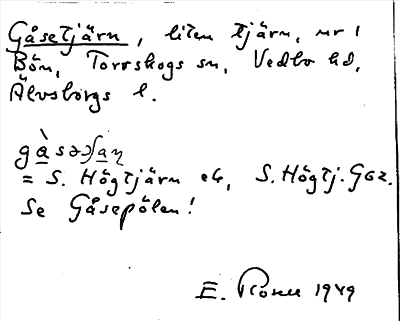 Gåsetjärn, liten tjärn, nr 1
Bön, Torrskogs sn, Vedbo hd,
Älvsborgs l.
= S. Högtjärn ek, S. Högtj. GSz.
Se Gåsepölen!
E. 1949